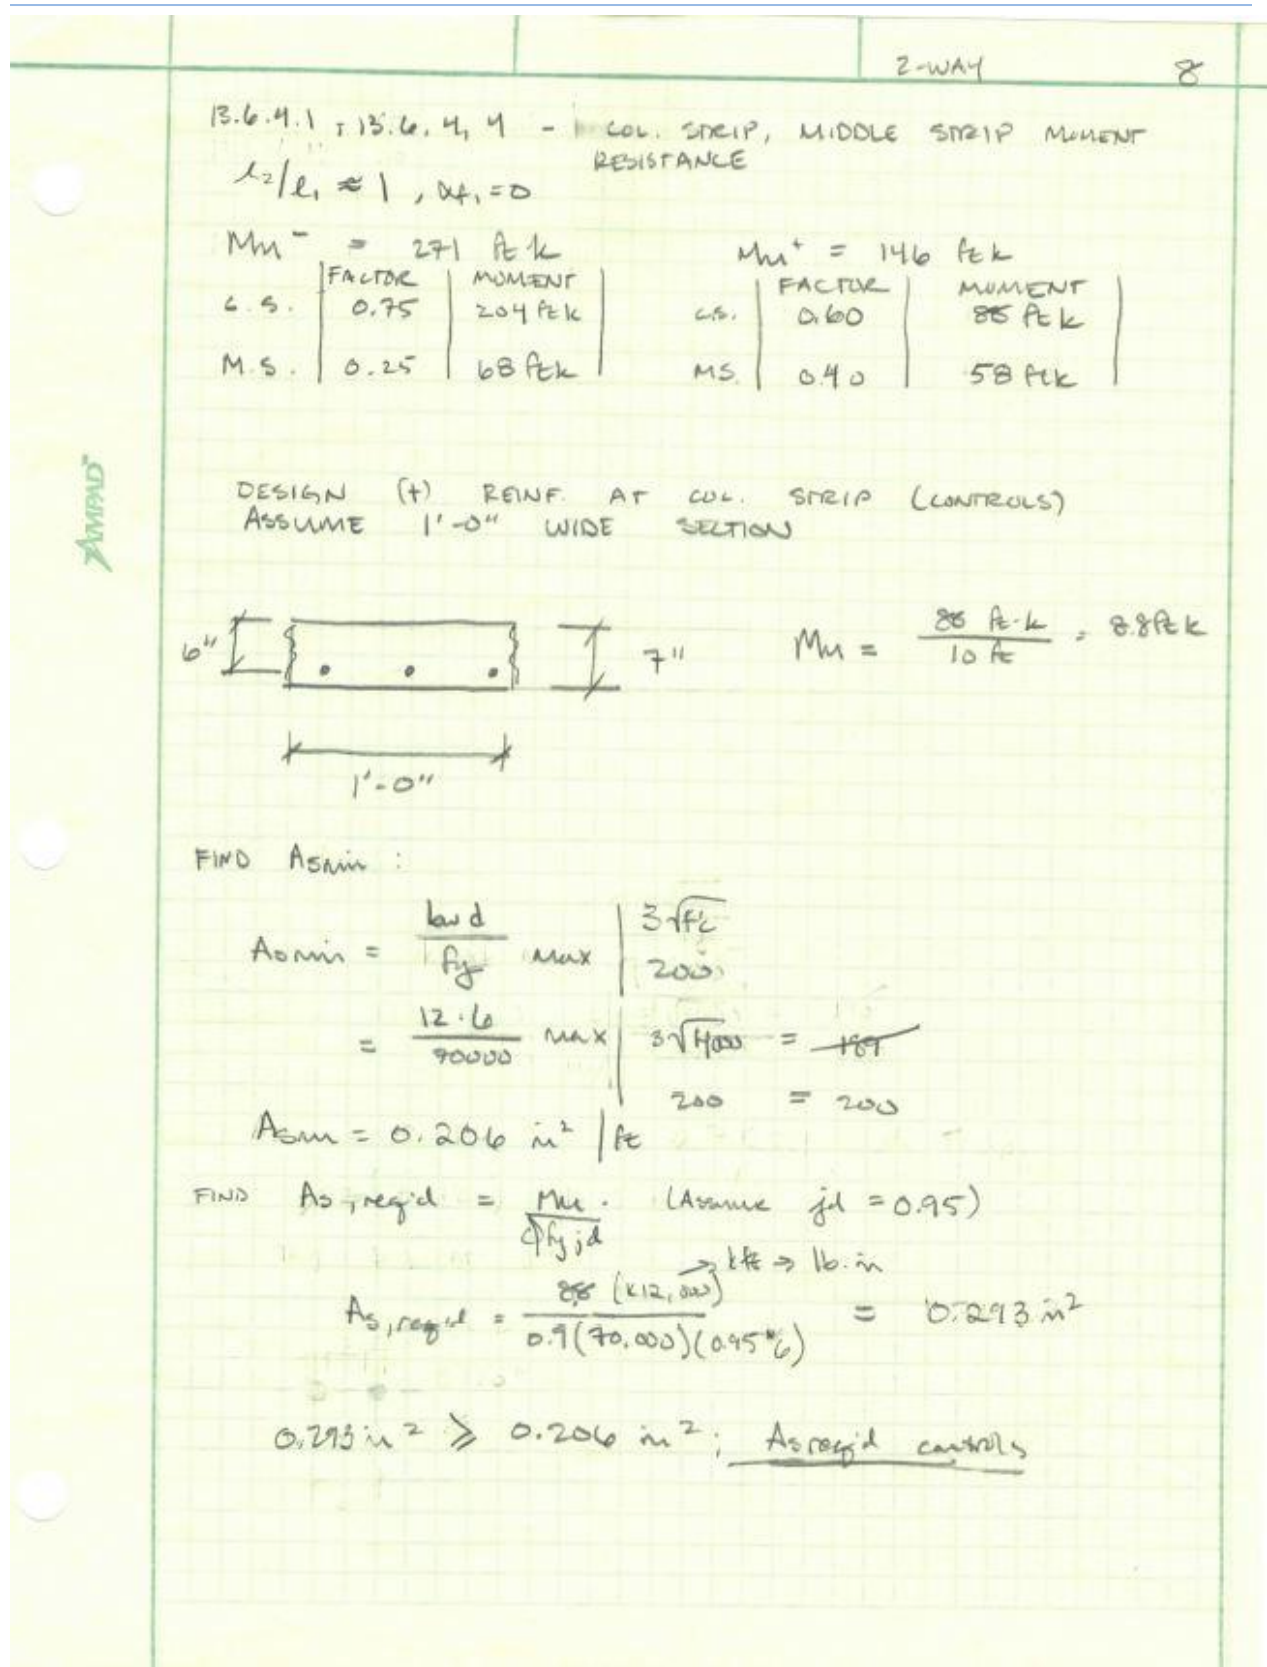 2-WAY 8
13.6.4.1 , 13.6.4.4 - COL. STRIP, MIDDLE STRIP MOMENT
RESISTANCE
l2/l1 ≈ 1 , αf1 = 0
Mu⁻ = 271 ft k
FACTOR MOMENT
C.S. 0.75 204 ft k
M.S. 0.25 68 ft k
Mu⁺ = 146 ft k
FACTOR MOMENT
C.S. 0.60 88 ft k
MS. 0.40 58 ft k
AMPAD™
DESIGN (+) REINF. AT COL. STRIP (CONTROLS)
ASSUME 1'-0" WIDE SECTION
6" 7"
1'-0"
Mu = 88 ft·k / 10 ft = 8.8 ft k
FIND Asmin :
Asmin = bwd / fy max | 3√f'c
200
= 12·6 / 70000 max | 3√4000 = 189
200 = 200
Asmin = 0.206 in² / ft
FIND As, req'd = Mu / φfyjd . (Assume jd = 0.95)
→ kft → lb·in
As, req'd = 8.8 (x12,000) / 0.9(70,000)(0.95*6) = 0.293 in²
0.293 in² ⩾ 0.206 in² ; As req'd controls